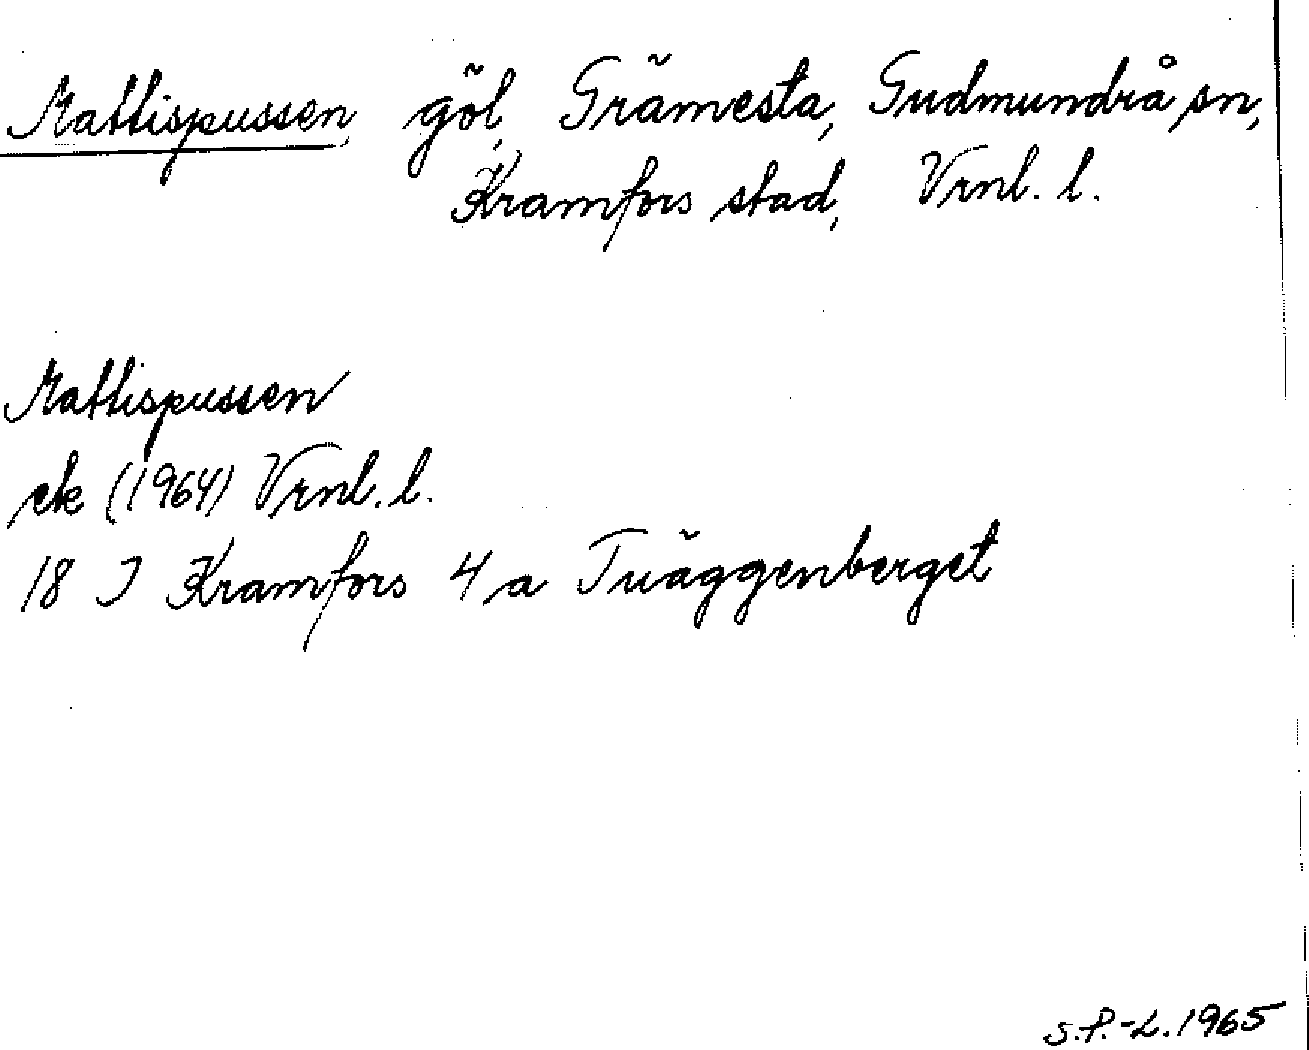 Mattispussen, göl, Grämesta, Gudmundrå sn,
Kramfors stad, Vrnl. l.
Mattispussen
ek (1964) Vrnl. l.
18 I Kramfors 4 a Tväggenberget
S.P.-L. 1965